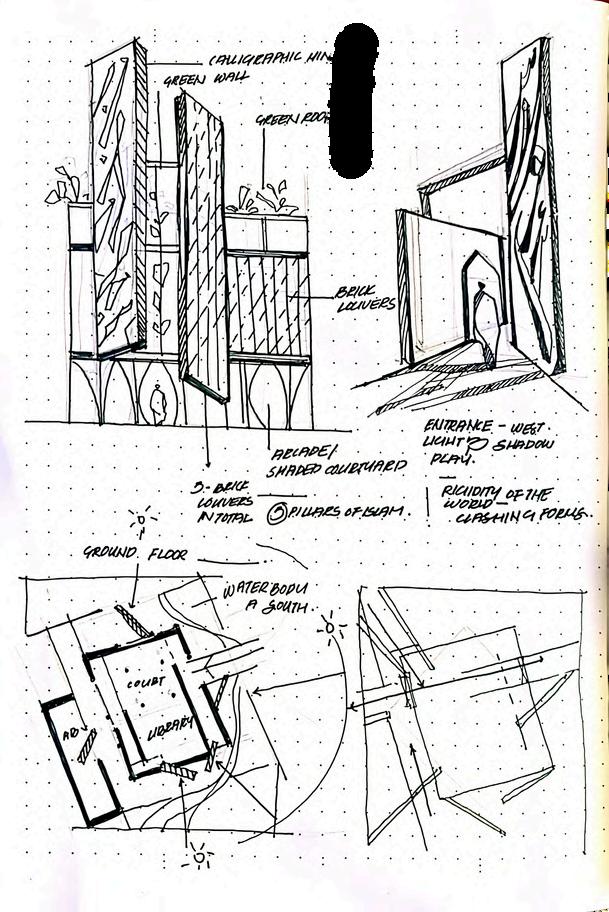 CALLIGRAPHIC
GREEN WALL
GREEN ROOF
BRICK
LOUVERS
ARCADE/
SHADED COURTYARD
5 - BRICK
LOUVERS
IN TOTAL
5 PILLARS OF ISLAM.
ENTRANCE - WEST.
LIGHT & SHADOW
PLAY.
RIGIDITY OF THE
WORLD -
CLASHING FORMS.
GROUND FLOOR
N
WATERBODY
@ SOUTH.
COURT
LIBRARY